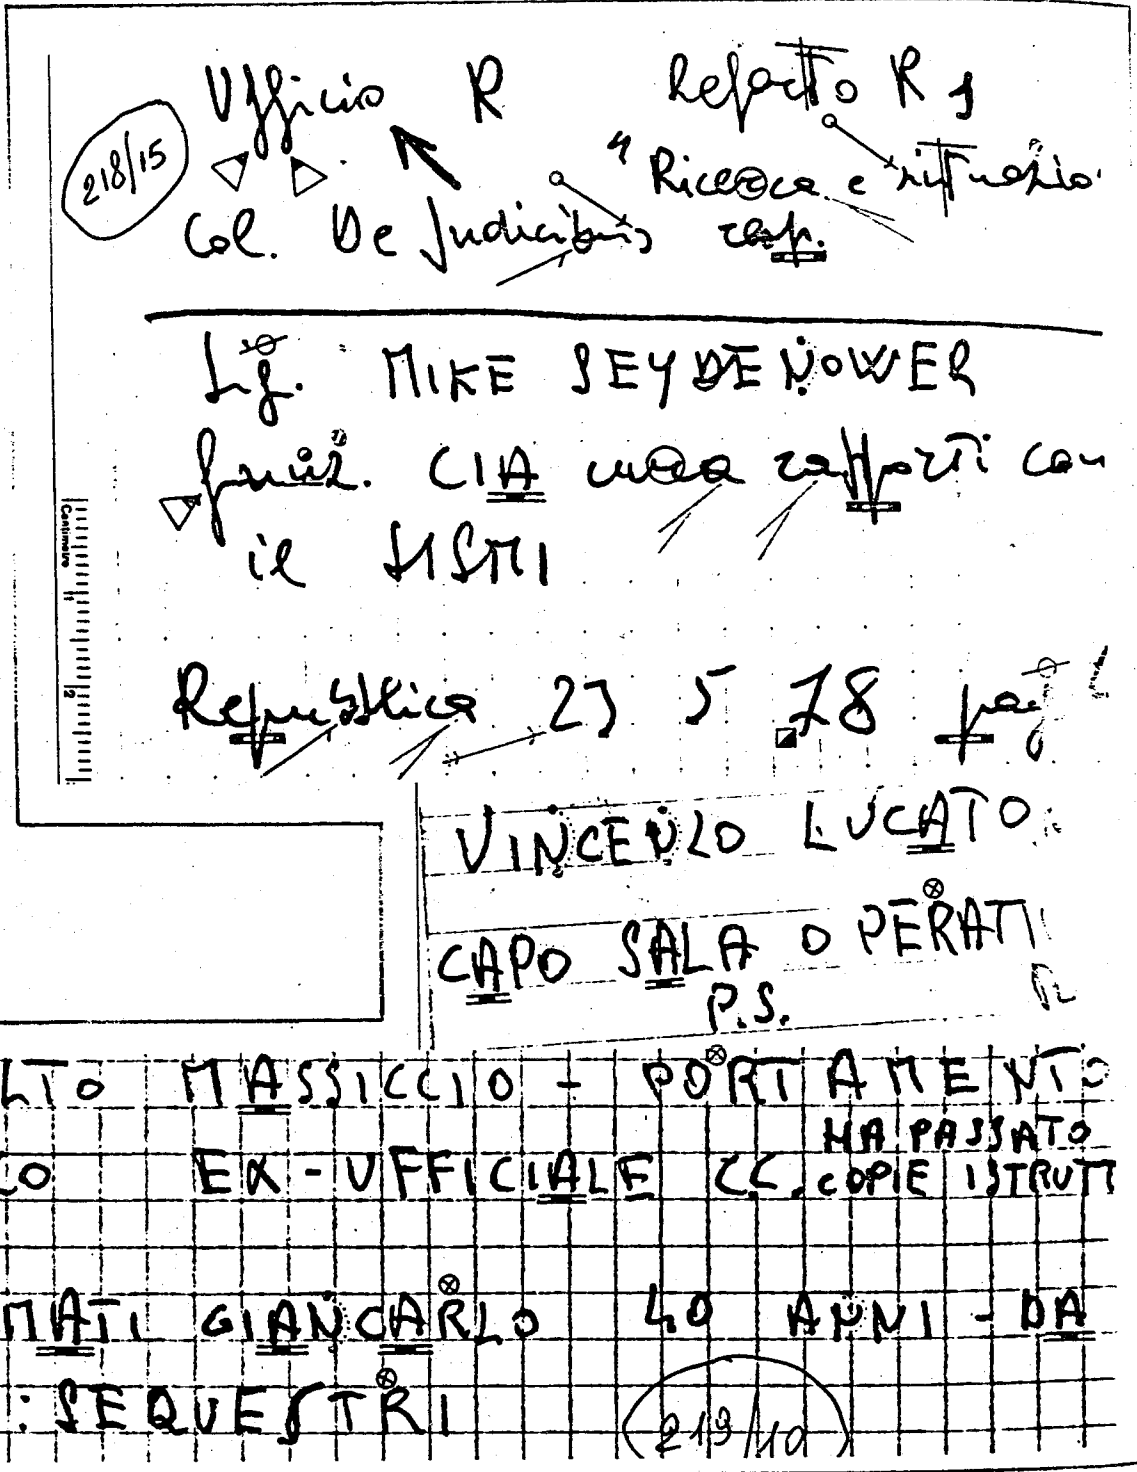 Ufficio R Reparto R 1
218/15
" Ricerca e situazio
Col. De Judicibus resp.
Sig. MIKE SEYDENOWER
funz. CIA cura rapporti con
il SISMI
Centimetre
1
2
Repubblica 23 5 78 pag
VINCENZO LUCATO
CAPO SALA OPERATI
P.S.
LTO MASSICCIO - PORTAMENTO
HA PASSATO
CO EX-UFFICIALE CC. COPIE ISTRUTT
MATI GIANCARLO 40 ANNI - DA
: SEQUESTRI
219/10